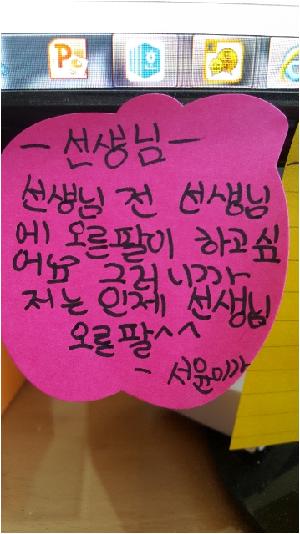 -선생님-
선생님 전 선생님
에 오른팔이 하고싶
어욥 그러니까
저는 인제 선생님
오른팔^^
- 서윤이가